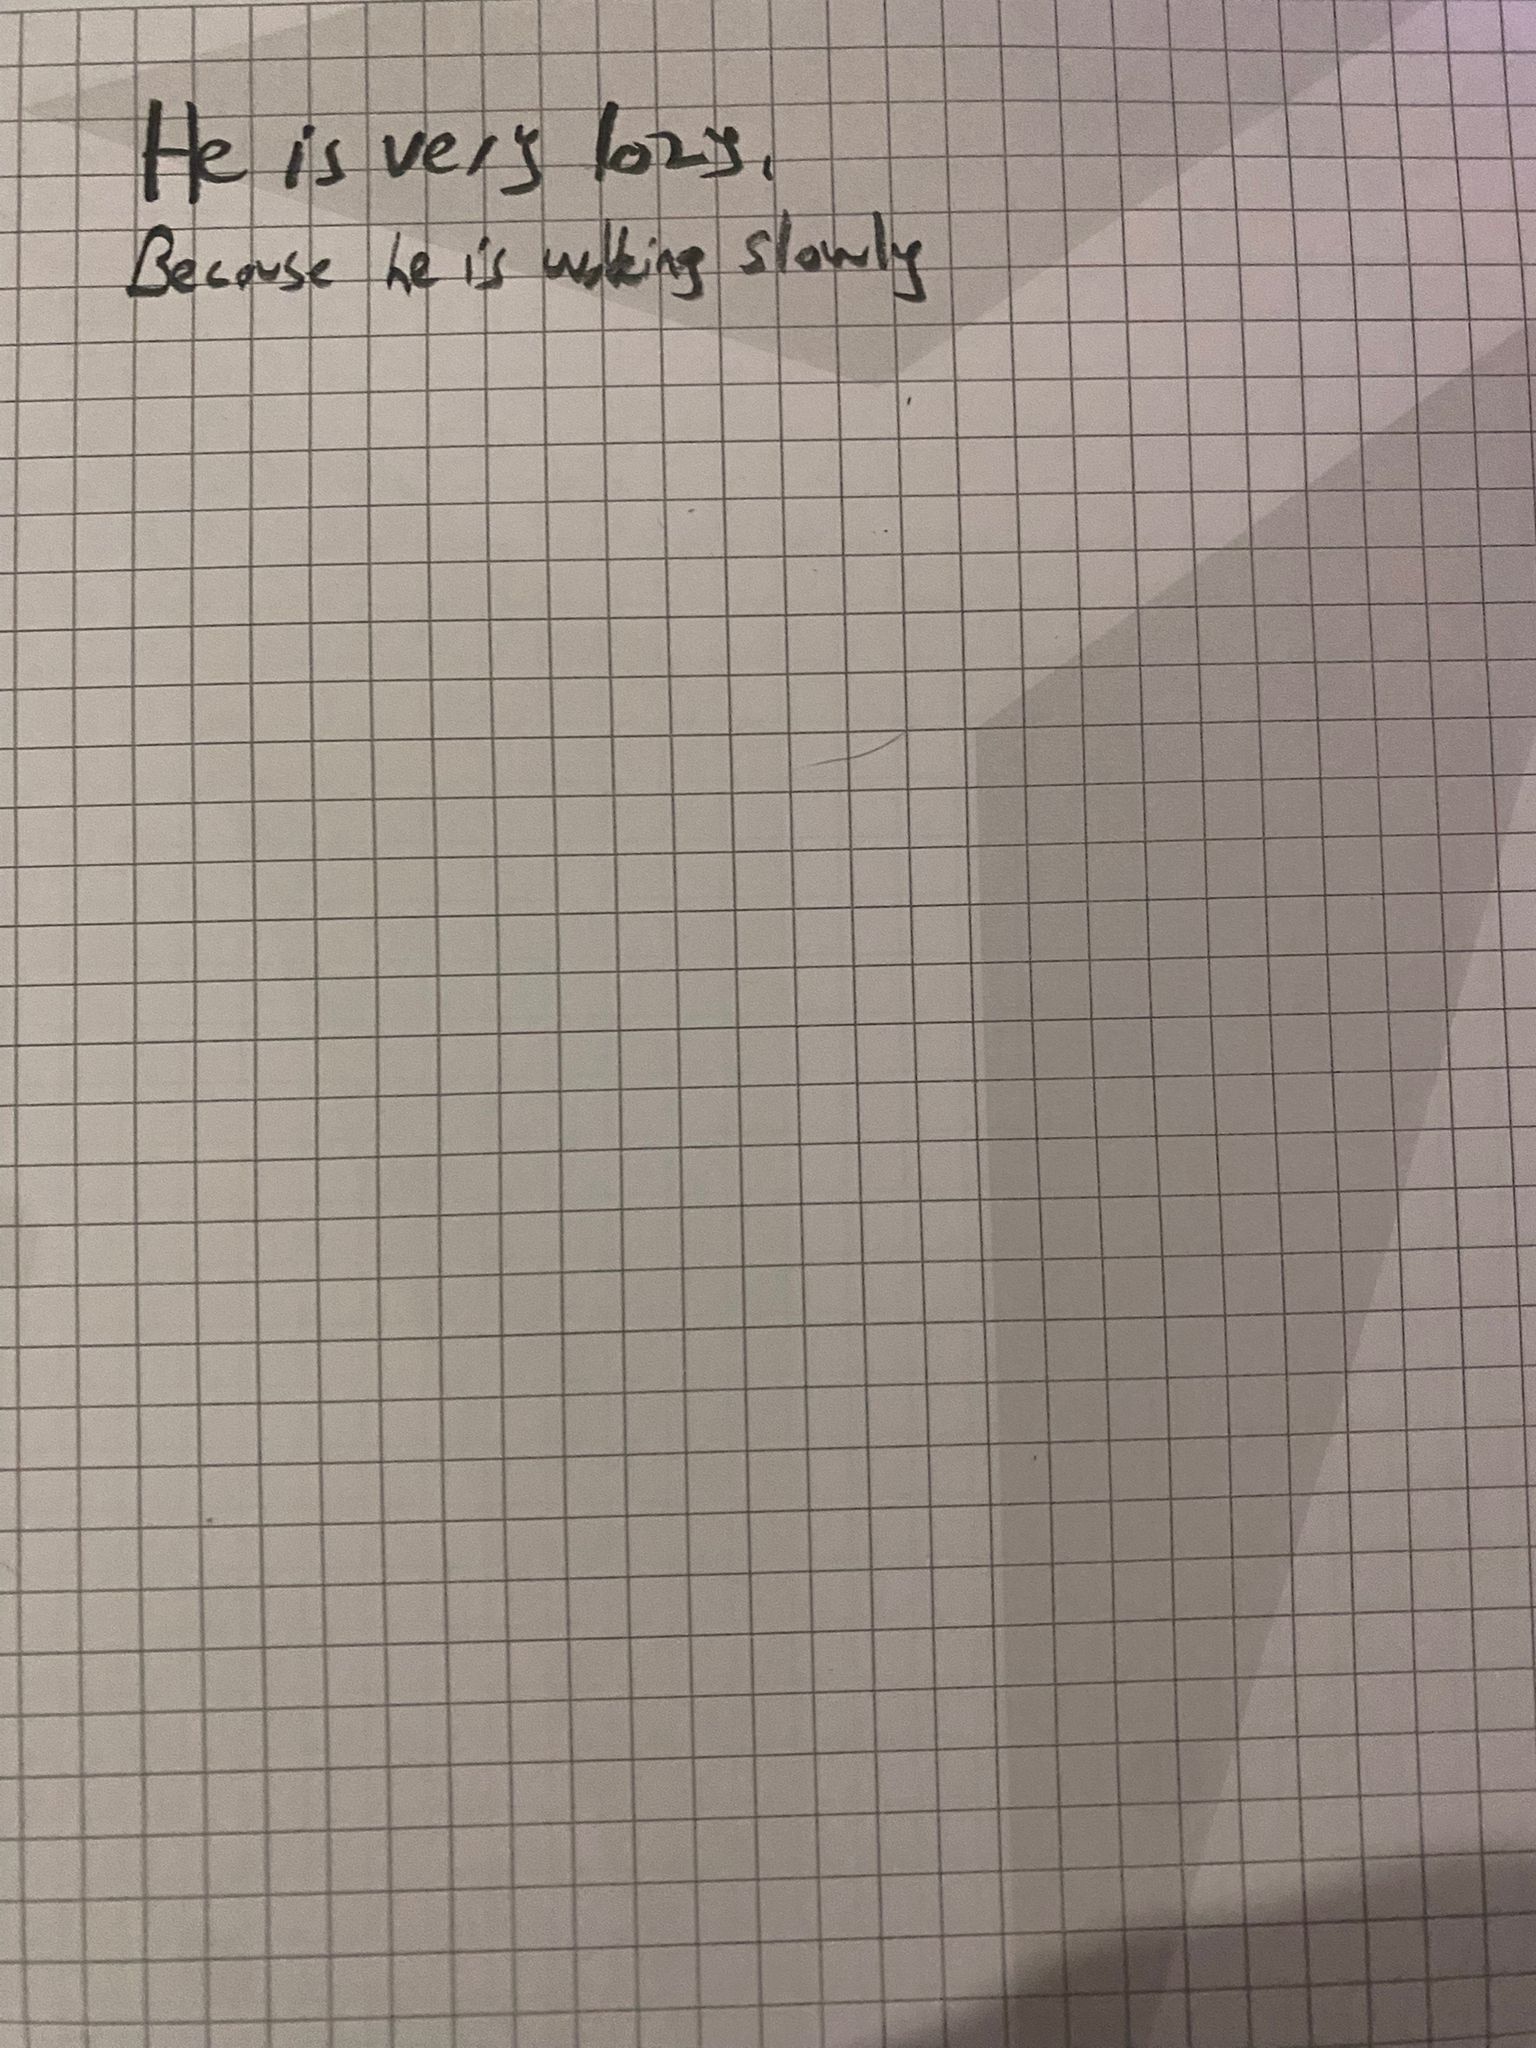 He is very lazy.
Because he is walking slowly